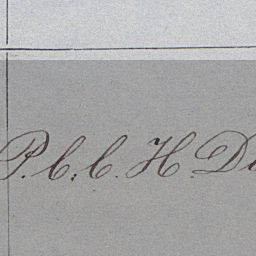 P. C. C. H. D